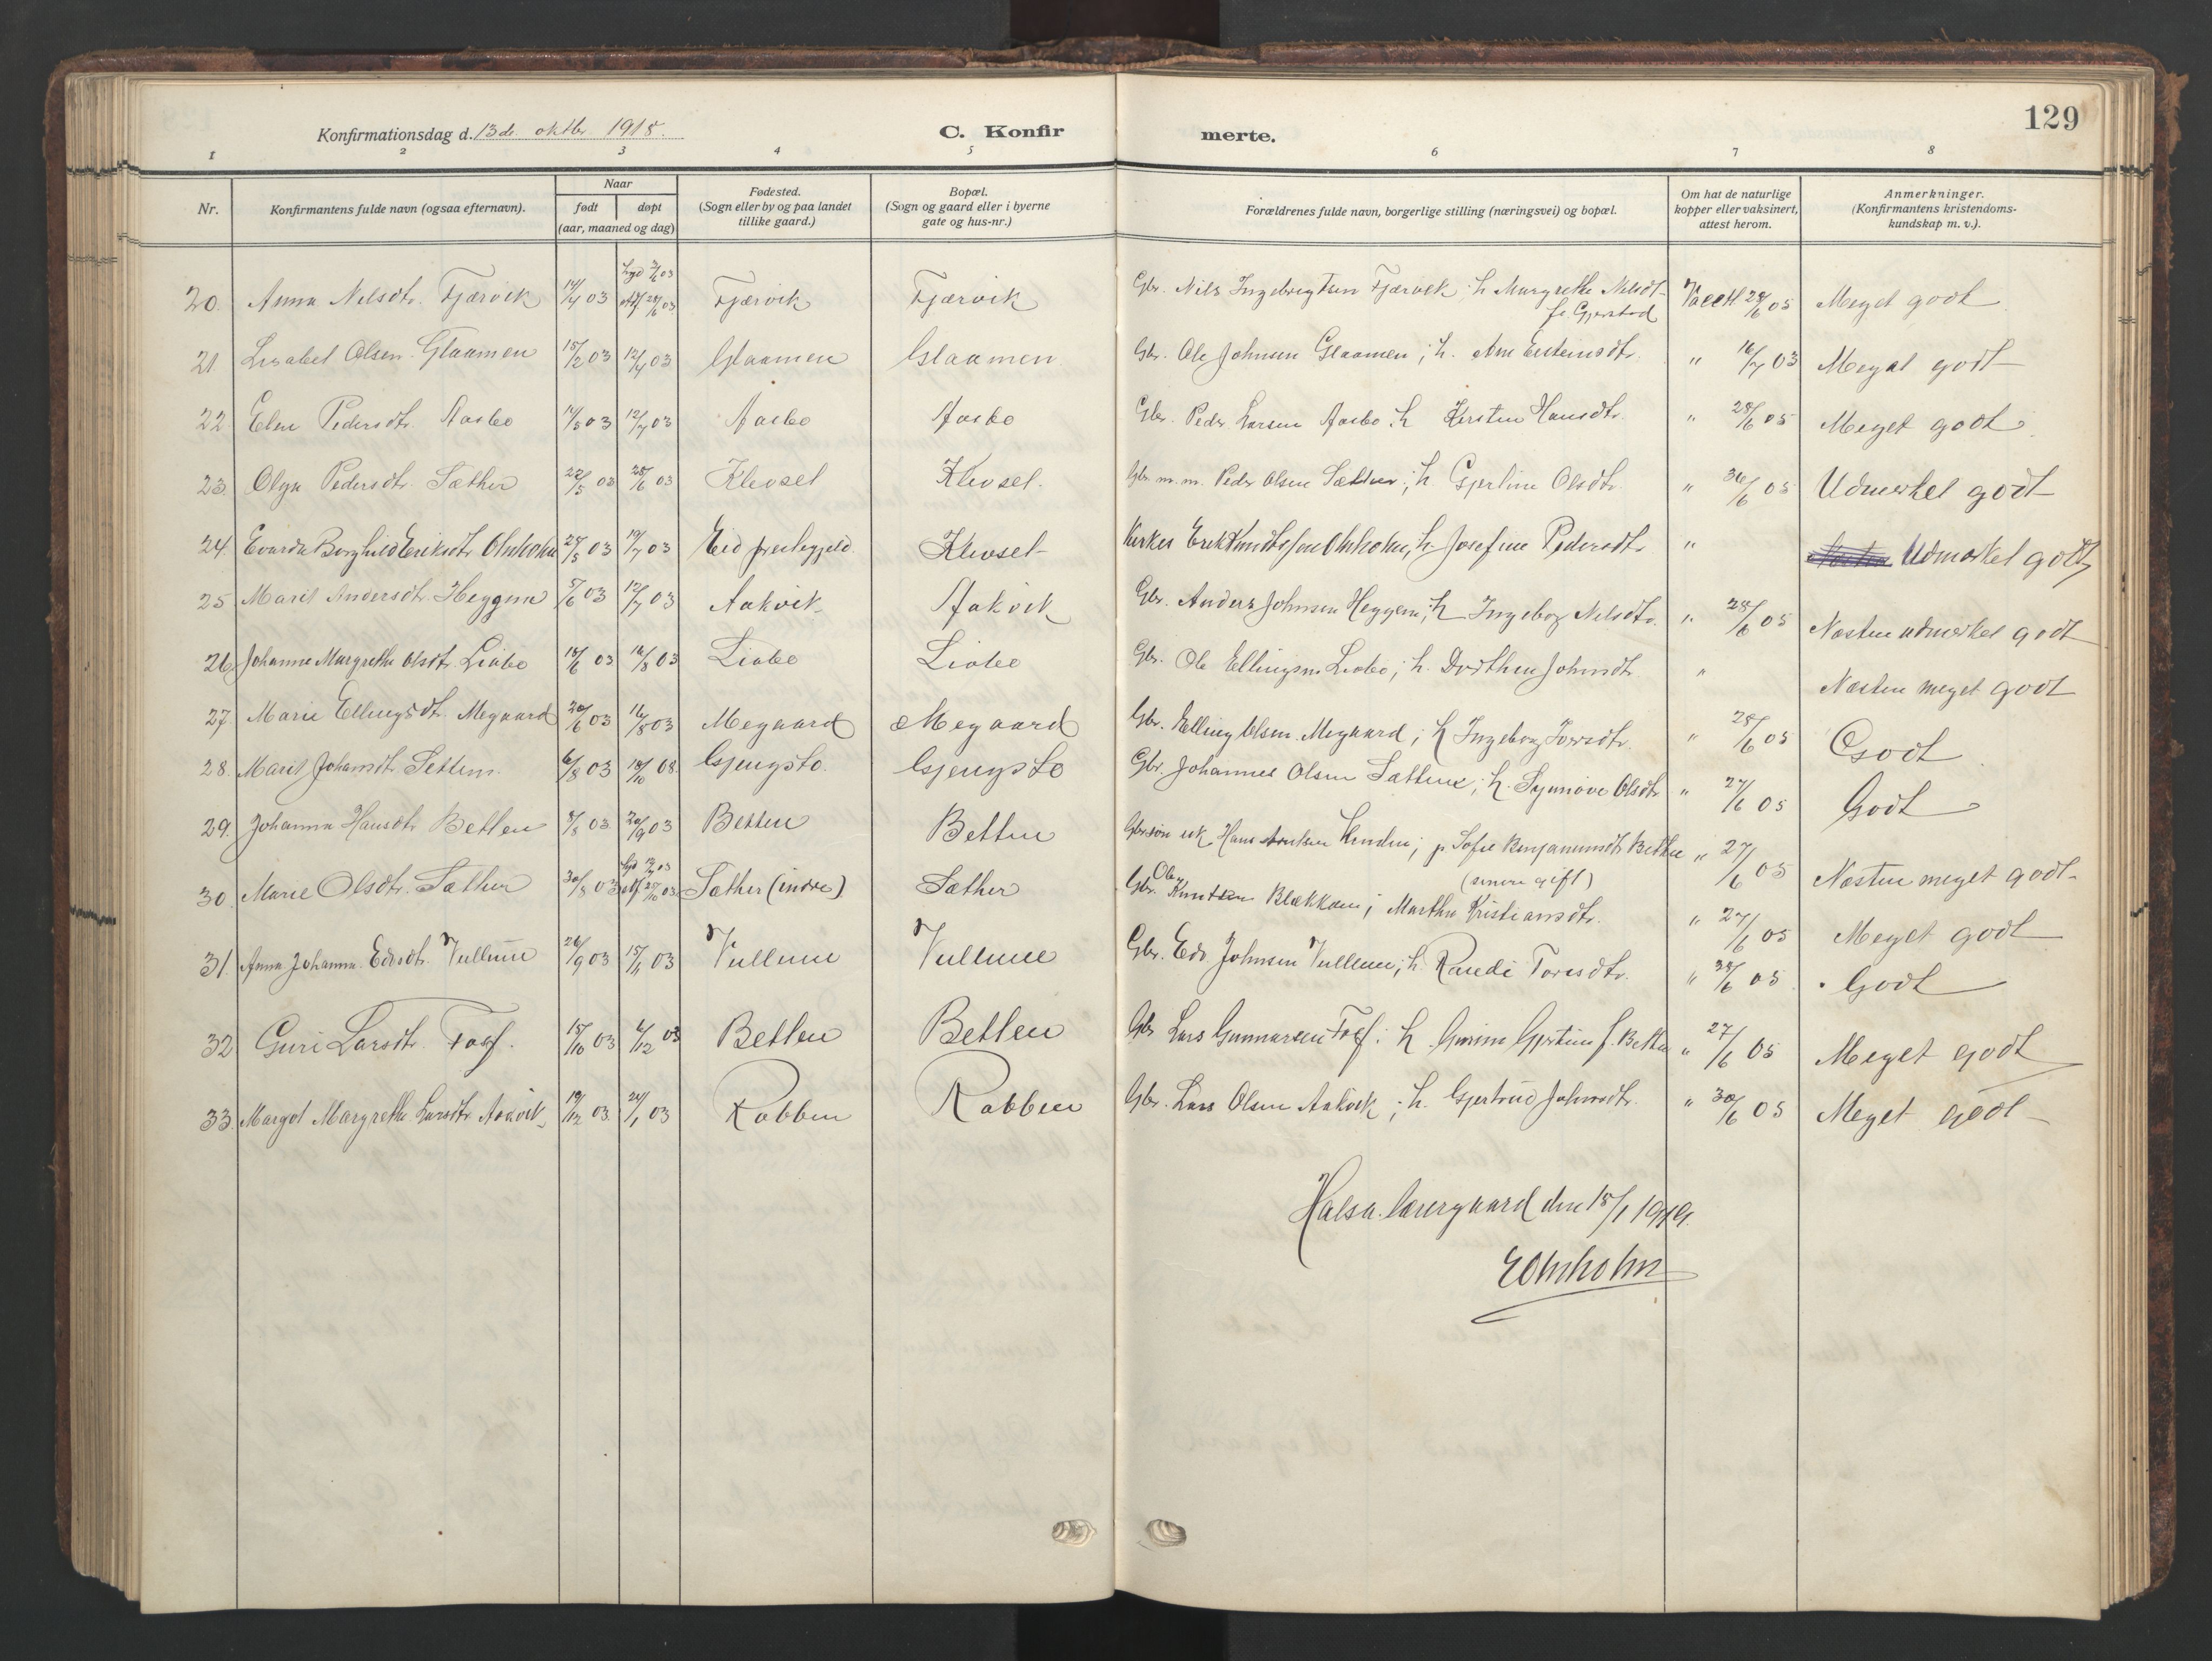 129
Konfirmationsdag d. 13de oktbr 1918.
C. Konfir
merte.
1 2 3 4 5 6 7 8
Nr.
Konfirmantens fulde navn (ogsaa efternavn).
Naar
født døpt
(aar, maaned og dag)
Fødested.
(Sogn eller by og paa landet
tillike gaard.)
Bopæl.
(Sogn og gaard eller i byerne
gate og hus-nr.)
Forældrenes fulde navn, borgerlige stilling (næringsvei) og bopæl.
Om hat de naturlige
kopper eller vaksinert,
attest herom.
Anmerkninger.
(Konfirmantens kristendoms-
kundskap m. v.).
20. Anna Nelsdtr. Fjærvik 14/4 03 Fjærvik Fjærvik Gbr. Nils Ingebrigtsen Fjærvik; h. Margrethe Nelsdt. f. Gjerstad 28/6 05 Meget godt
21 Lisabet Olsen Glaamen 15/2 03 12/4 03 Glaamen Glaamen Gbr. Ole Johnsen Glaamen; h. Ane Eisteinsdtr. " 16/7 03 Meget godt
22 Elen Pedersdtr. Aasbo 14/5 03 12/7 03 Aasbo Aasbo Gbr. Peder Larsen Aasbo; h. Kirsten Hansdtr. " 28/6 05 Meget godt
23. Olga Pedersdtr. Sæther 22/5 03 28/6 03 Klevset Klevset. Gbr. m.m. Peder Olsen Sæther; h. Gjertine Olsdtr. " 30/6 05 Udmerket godt
24. Evarda Borghild Eriksdtr Olnholm 27/5 03 19/7 03 Eid prestegjeld Klevset Kirkes. Erik Knudtssøn Olnholm, h. Josefine Pedersdtr. " Udmerket godt
25 Marit Andersdtr. Heggem 5/6 03 12/7 03 Aakvik Aakvik Gbr. Anders Johnsen Heggem; h. Ingeborg Nilsdtr. " 28/6 05 Næsten udmerket godt
26 Johanne Margrethe Olsdtr. Liabø 18/6 03 16/8 03 Liabø Liabø Gbr. Ole Ellingsen Liabø; h. Dorthea Johnsdtr. " Næsten meget godt
27. Marie Ellingsdtr. Megaard 20/6 03 16/8 03 Megaard Megaard Gbr. Elling Olsen Megaard; h. Ingeborg Iversdtr. " 28/6 05 Godt
28. Marit Johansdtr. Settem 6/8 03 18/10 08. Gjengstø. Gjengstø Gbr. Johannes Olsen Sættem; h. Synnøve Olsdtr " 27/6 05 Godt
29. Johanna Hansdtr Betten 8/8 03 20/9 03 Betten Betten Gbrsøn uk. Hans Kundin; p. Sofie Benjaminsdtr Betten (senere gift) " 27/6 05 Næsten meget godt
30. Marie Olsdtr. Sæther 30/8 03 Sæther (indre) Sæther Gbr. Ole Knutsen Blækkan; Martha Kristiansdtr. " 27/6 05 Meget godt
31. Anna Johanna Edvsdtr. Vullum 26/9 03 15/11 03 Vullum Vullum Gbr. Edv. Johnsen Vullum; h. Randi Toresdtr. " 28/6 05 Godt
32 Guri Larsdtr. Foss. 15/10 03 6/12 03 Betten Betten Gbr Lars Gunnarsen Foss: h. Gjertine f. Betten " 27/6 05 Meget godt
33. Margot Margrethe Larsdtr Aakvik 19/12 03 24/1 03 Rabben Rabben Gbr. Lars Olsen Aakvik; h. Gjertrud Johnsdtr. " 30/6 05 Meget godt
Halsa lærergaard den 15/1 1919.
E Olnholm